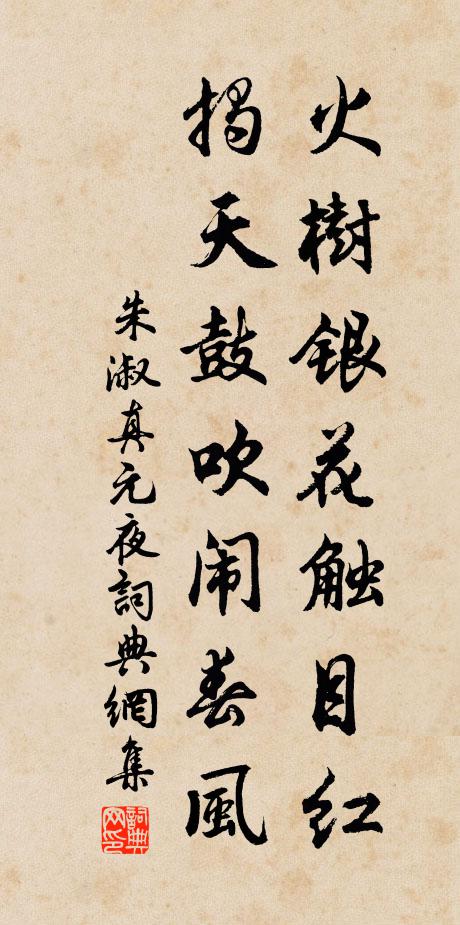 火樹銀花触目红
揭天鼓吹闹春風
朱淑真元夜詞典網集
詞典网印